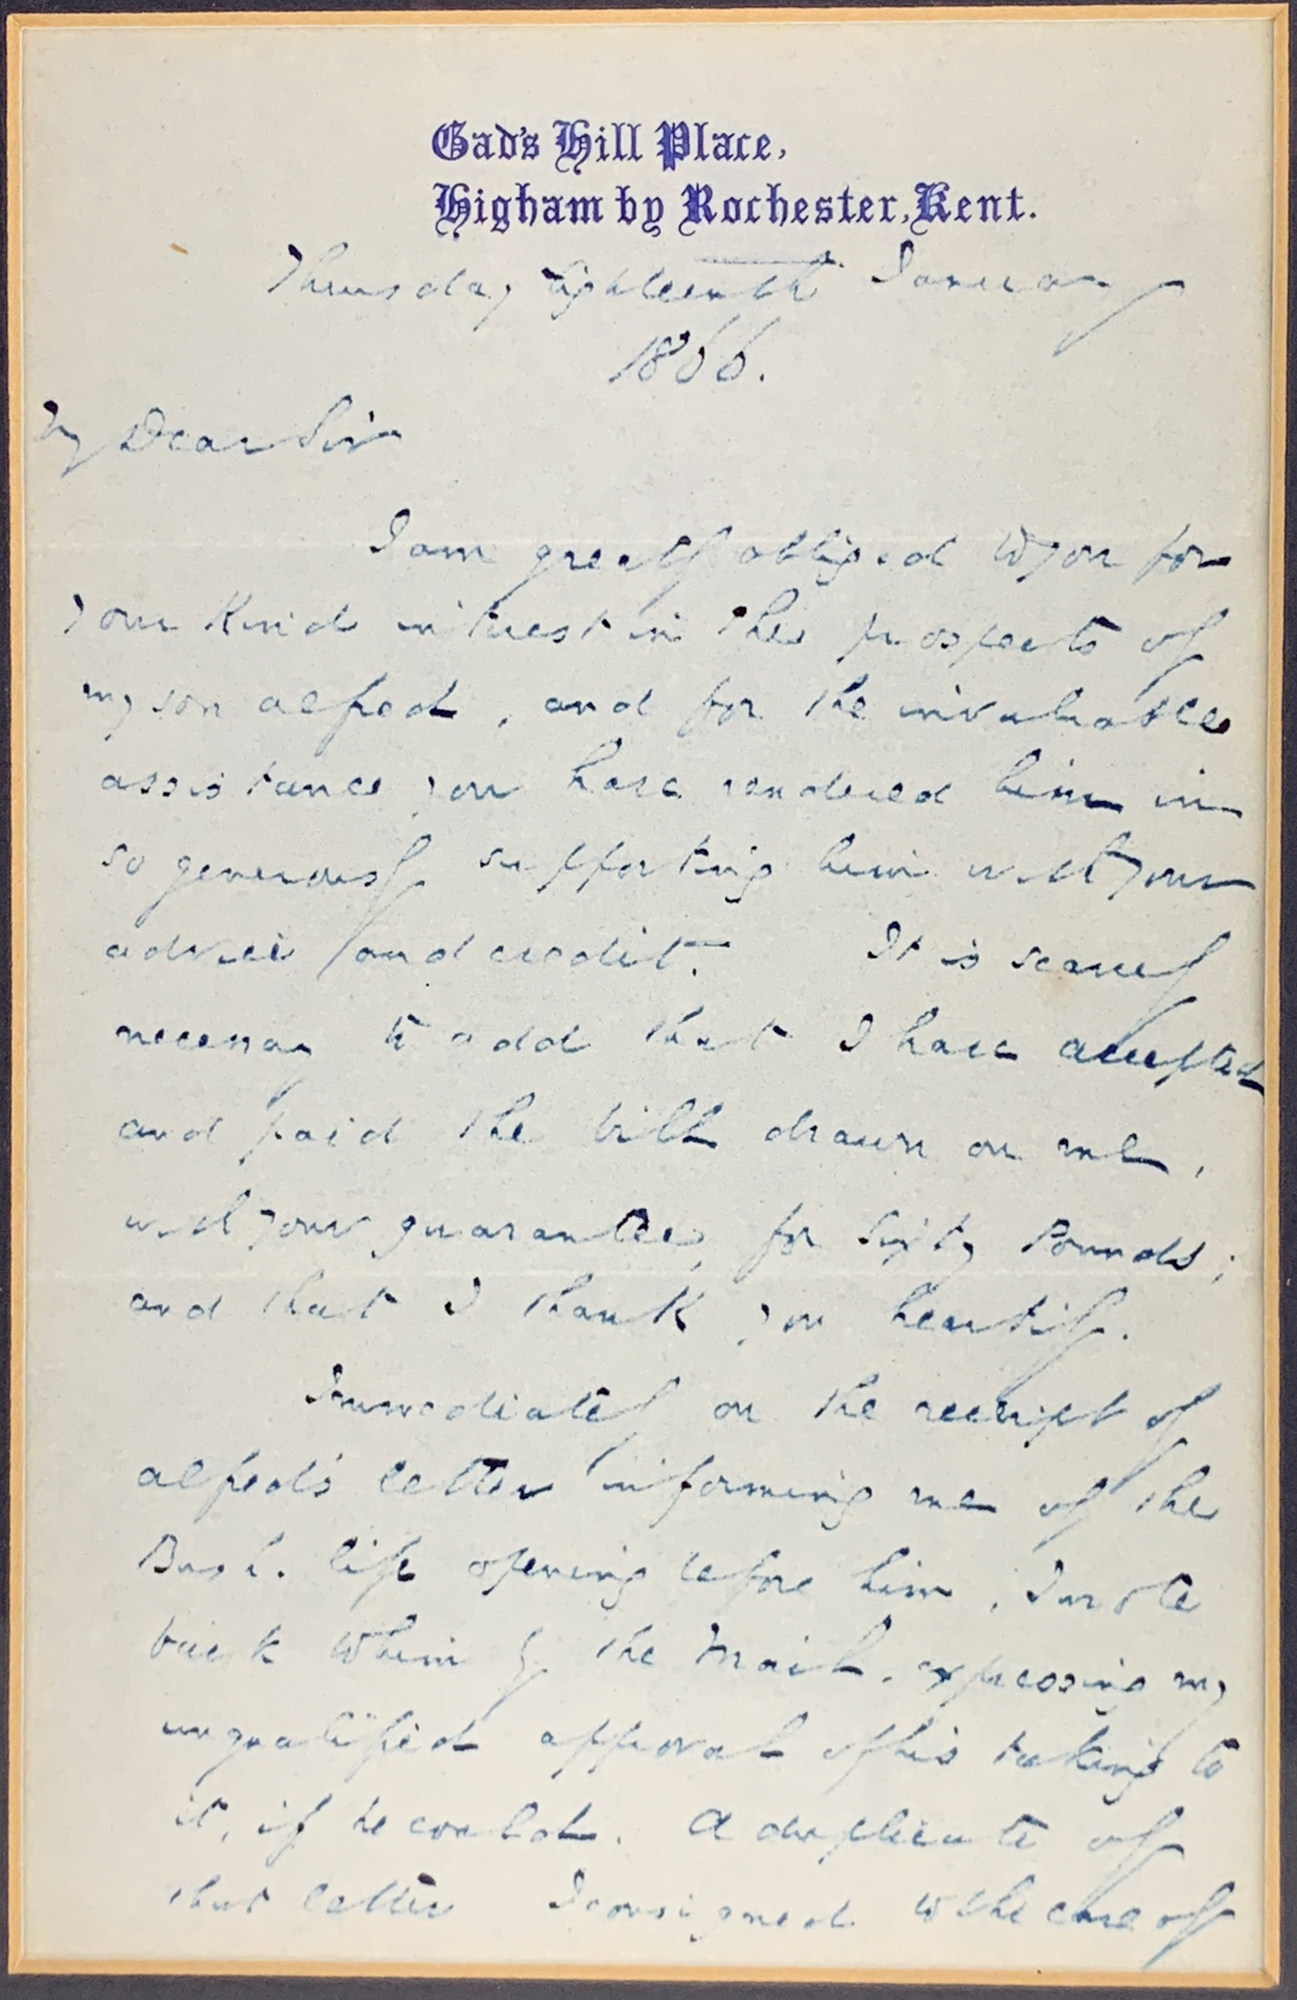 Gad's Hill Place,
Higham by Rochester, Kent.
Thursday Eighteenth January
1866.
My Dear Sir
I am greatly obliged to you for
your kind interest in the prospects of
my son Alfred, and for the invaluable
assistance you have rendered him in
so generously supporting him with your
advice and credit. It is scarcely
necessary to add that I have accepted
and paid the bill drawn on me,
with your guarantee, for Sixty Pounds;
and that I thank you heartily.
Immediately on the receipt of
Alfred's letter informing me of the
Bush-life opening before him, I wrote
back to him by the Mail, expressing my
unqualified approval of his taking to
it, if he could. A duplicate of
that letter I consigned to the care of